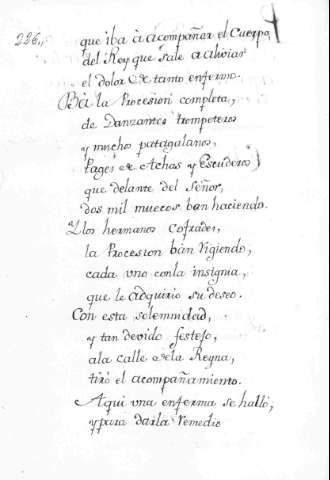 226,,
que iba à acompañar el Cuerpo,
del Rey que sale a aliviar
el dolor de tanto enfermo.
Bà la Procesion completa,
de Danzantes trompeteros
y muchos patagalanos,
Pages de Achas y Escuderos
que delante del Señor,
dos mil muecos ban haciendo.
Y los hermanos Cofrades,
la Procesion bàn rigiendo,
cada uno con la insignia,
que le adquirio su deseo.
Con esta solemnidad,
y tan devido festejo,
a la calle de la Reyna,
tirò el acompañamiento.
Aqui una enferma se hallò,
y para darla remedio